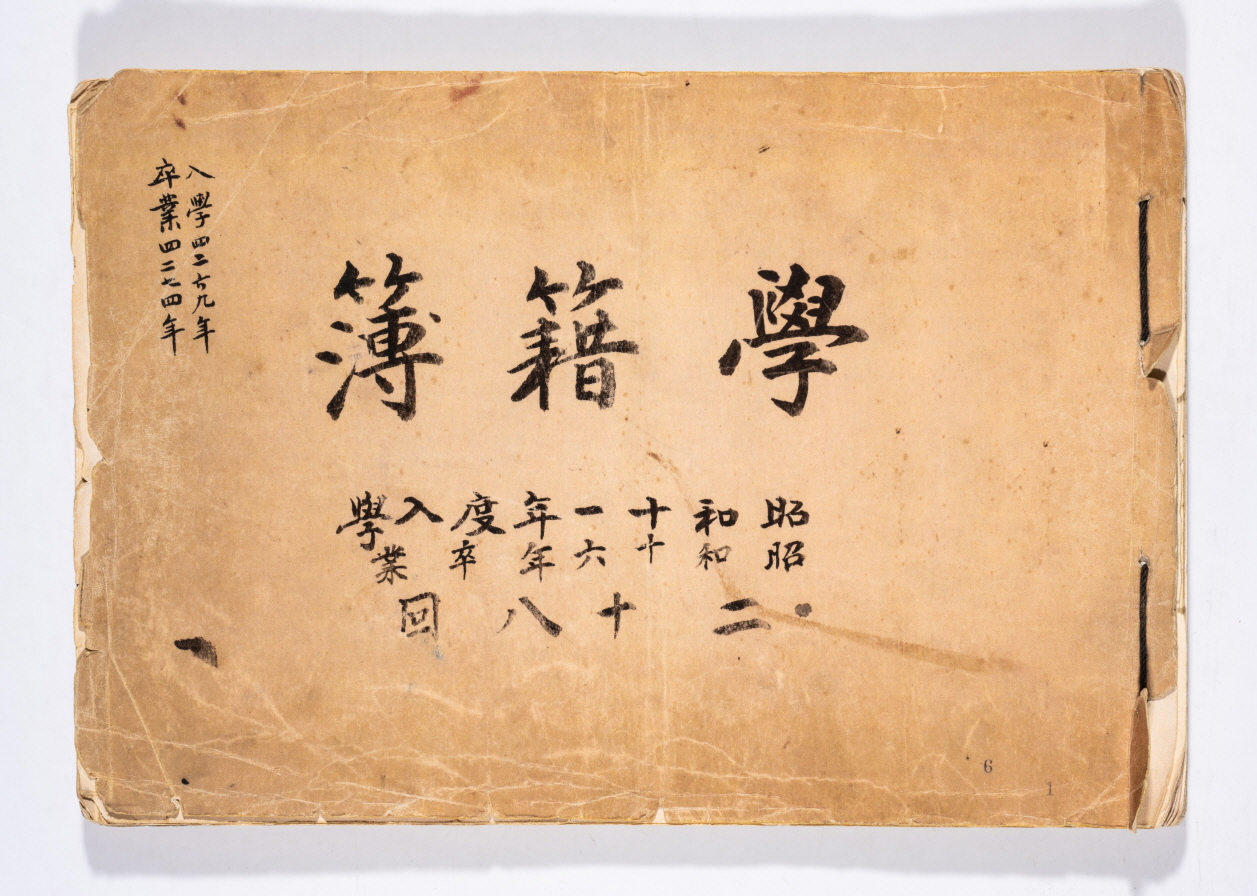 學籍簿
昭和十一年度入學
昭和十六年卒業
二十八回
入學四二六九年
卒業四二七四年
6
1